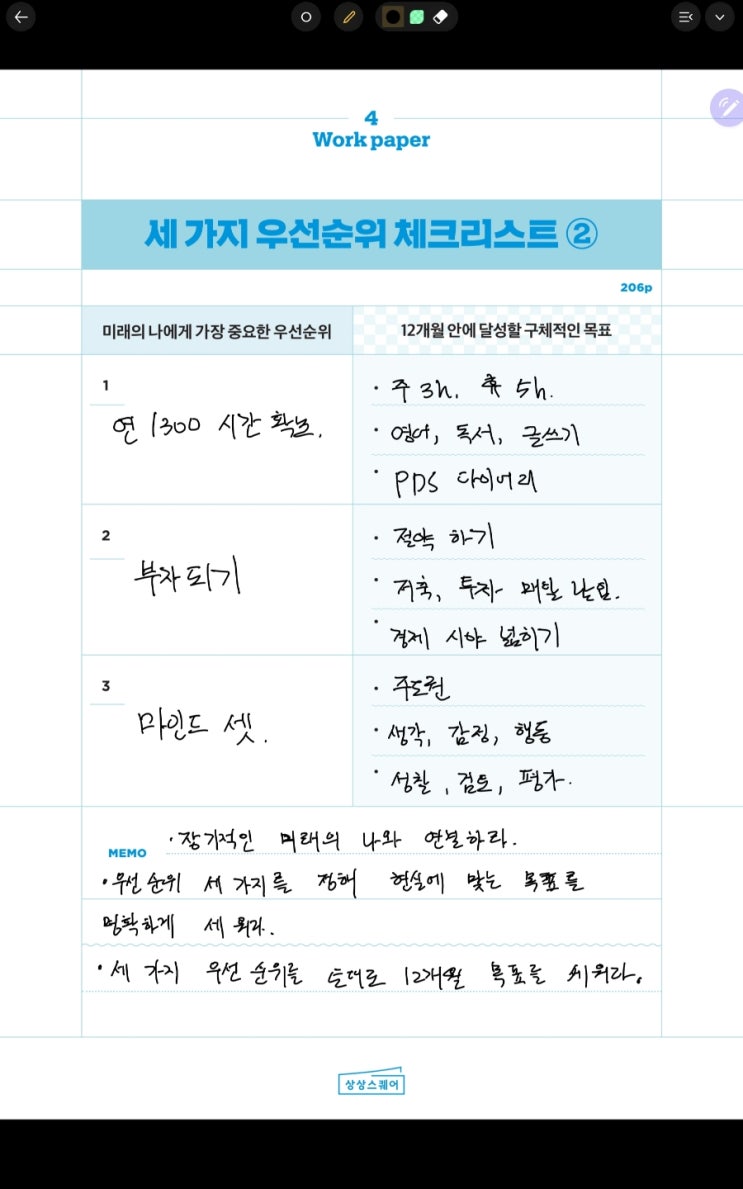 4
Work paper
세 가지 우선순위 체크리스트 ②
206p
미래의 나에게 가장 중요한 우선순위
12개월 안에 달성할 구체적인 목표
1
연 1300 시간 확보.
· 주 3h. 휴 5h.
· 영어, 독서, 글쓰기
· PDS 다이어리
2
부자되기
· 절약 하기
· 저축, 투자 매일
· 경제 시야 넓히기
3
마인드 셋.
· 주도권
· 생각, 감정, 행동
· 성찰, 검토, 평가.
MEMO
· 장기적인 미래의 나와 연결하라.
· 우선 순위 세 가지를 정해 현실에 맞는 목표를
명확하게 세 워라.
· 세 가지 우선 순위를 토대로 12개월 목표를 세워라.
상상스퀘어